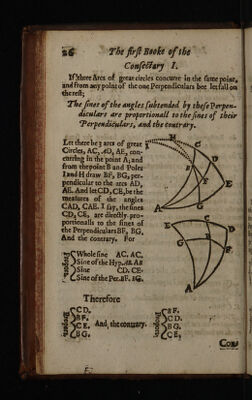 26 The first Booke of the
Consectary I.
If three Arcs of great circles concurre in the same point,
and from any point of the one Perpendiculars bee let fall on
the rest;
The sines of the angles subtended by these Perpen-
diculars are proportionall to the sines of their
Perpendiculars, and the contrary.
Let there be 3 arcs of great
Circles, AC, AD, AE, con-
curring in the point A; and
from the point B and Poles
I and H draw BF, BG, per-
pendicular to the arcs AD,
AE. And let CD, CE, be the
measures of the angles
CAD, CAE. I say, the sines
CD, CE, are directly pro-
portionalls to the sines of
the Perpendiculars BF, BG.
And the contrary. For
Proport.
Whole sine AC. AC.
Sine of the Hyp. AB. AB
Sine CD. CE.
Sine of the Per. BF. BG.
I H
C
B
D
F
G
E
A
E C D
G B F
A
Therefore
Proport.
CD.
BF.
CE.
BG.
And, the contrary.
Proport.
BF.
CD.
BG.
CE,